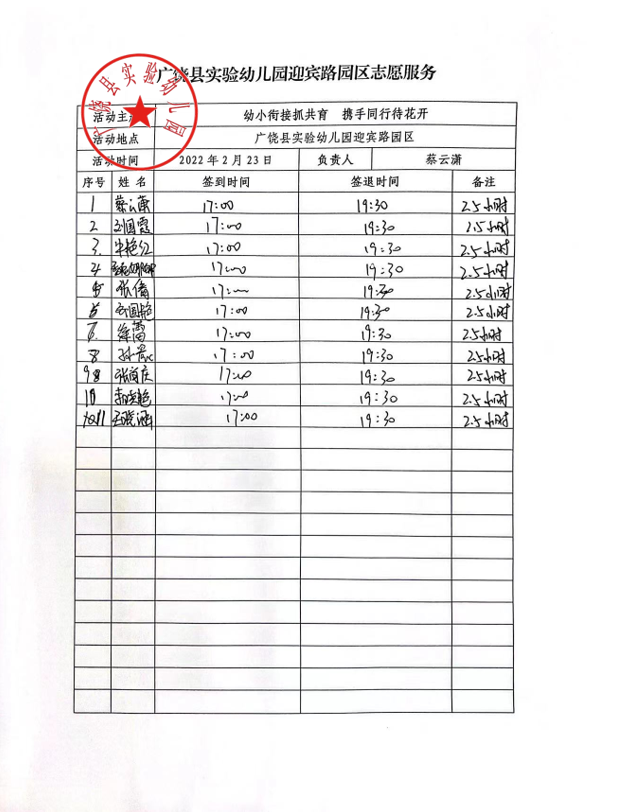 广饶县实验幼儿园迎宾路园区志愿服务
广饶县实验幼儿园
活动主 幼小衔接抓共育 携手同行待花开
活动地点 广饶县实验幼儿园迎宾路园区
活动时间 2022年2月23日 负责人 蔡云潇
序号 姓名 签到时间 签退时间 备注
1 17:00 19:30 2.5小时
2 刘国霞 17:00 19:30 2.5小时
3. 牛艳红 17:00 19:30 2.5小时
4 17:00 19:30 2.5小时
5 张倩 17:00 19:30 2.5小时
17:00 19:30 2.5小时
徐蕾 17:00 19:30 2.5小时
8 17:00 19:30 2.5小时
9 17:00 19:30 2.5小时
10 17:00 19:30 2.5小时
11 17:00 19:30 2.5小时